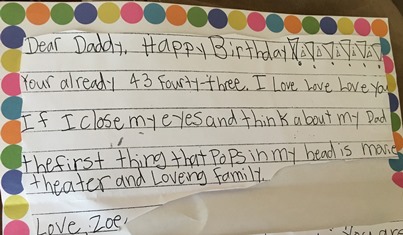 Dear Daddy, Happy Birthday
Your already 43 Fourty-three. I Love Love Love you
If I close my eyes and think about my Dad
the first thing that Pops in my head is movie
theater and Loveing family.
Love, Zoe,
You are